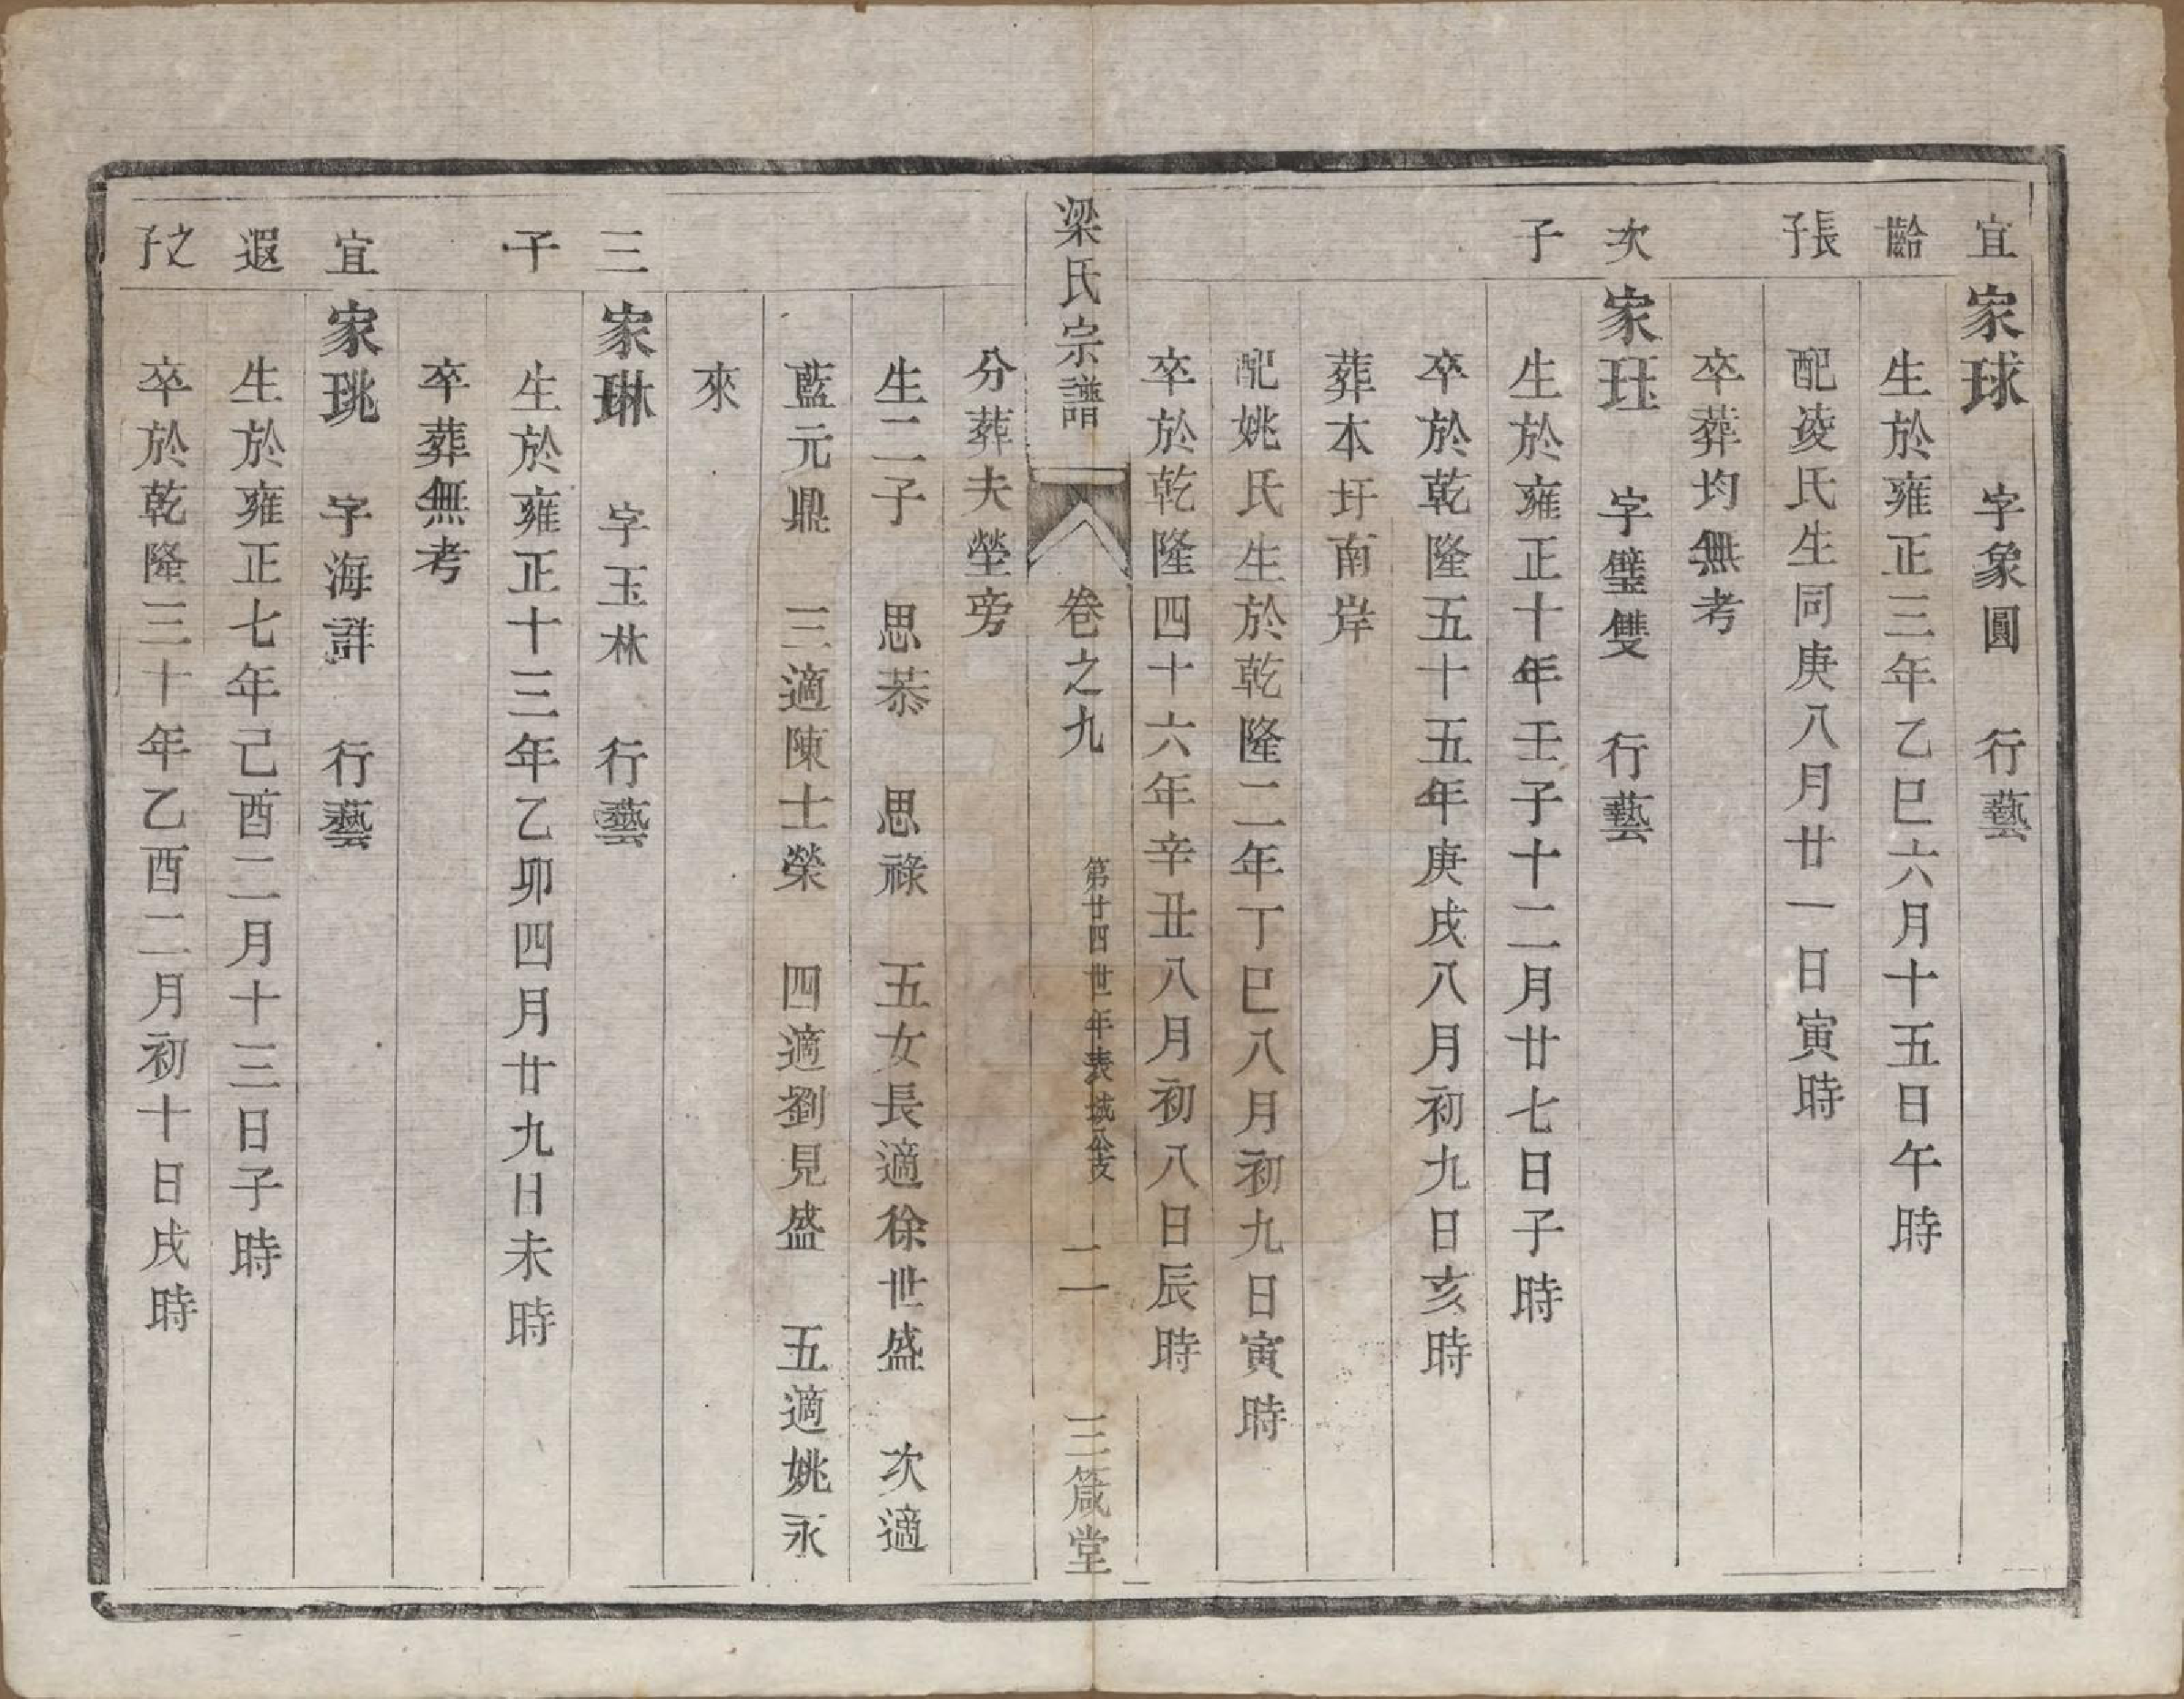 宜 家球 字象圓 行藝
齡 生於雍正三年乙巳六月十五日午時
長子 配凌氏生同庚八月廿一日寅時
卒葬均無考
次 家玨 字璧雙 行藝
子 生於雍正十年壬子十二月廿七日子時
卒於乾隆五十五年庚戌八月初九日亥時
葬本圩南岸
配姚氏生於乾隆二年丁巳八月初九日寅時
卒於乾隆四十六年辛丑八月初八日辰時
梁氏宗譜 卷之九 第廿四世年表 城公支 二一 三箴堂
分葬夫塋旁
生二子 思恭 思祿 五女長適徐世盛 次適
藍元鼎 三適陳士榮 四適劉見盛 五適姚永
來
三 家琳 字玉林 行藝
子 生於雍正十三年乙卯四月廿九日未時
卒葬無考
宜 家珧 字海詳 行藝
遐 生於雍正七年己酉二月十三日子時
之子 卒於乾隆三十年乙酉二月初十日戌時